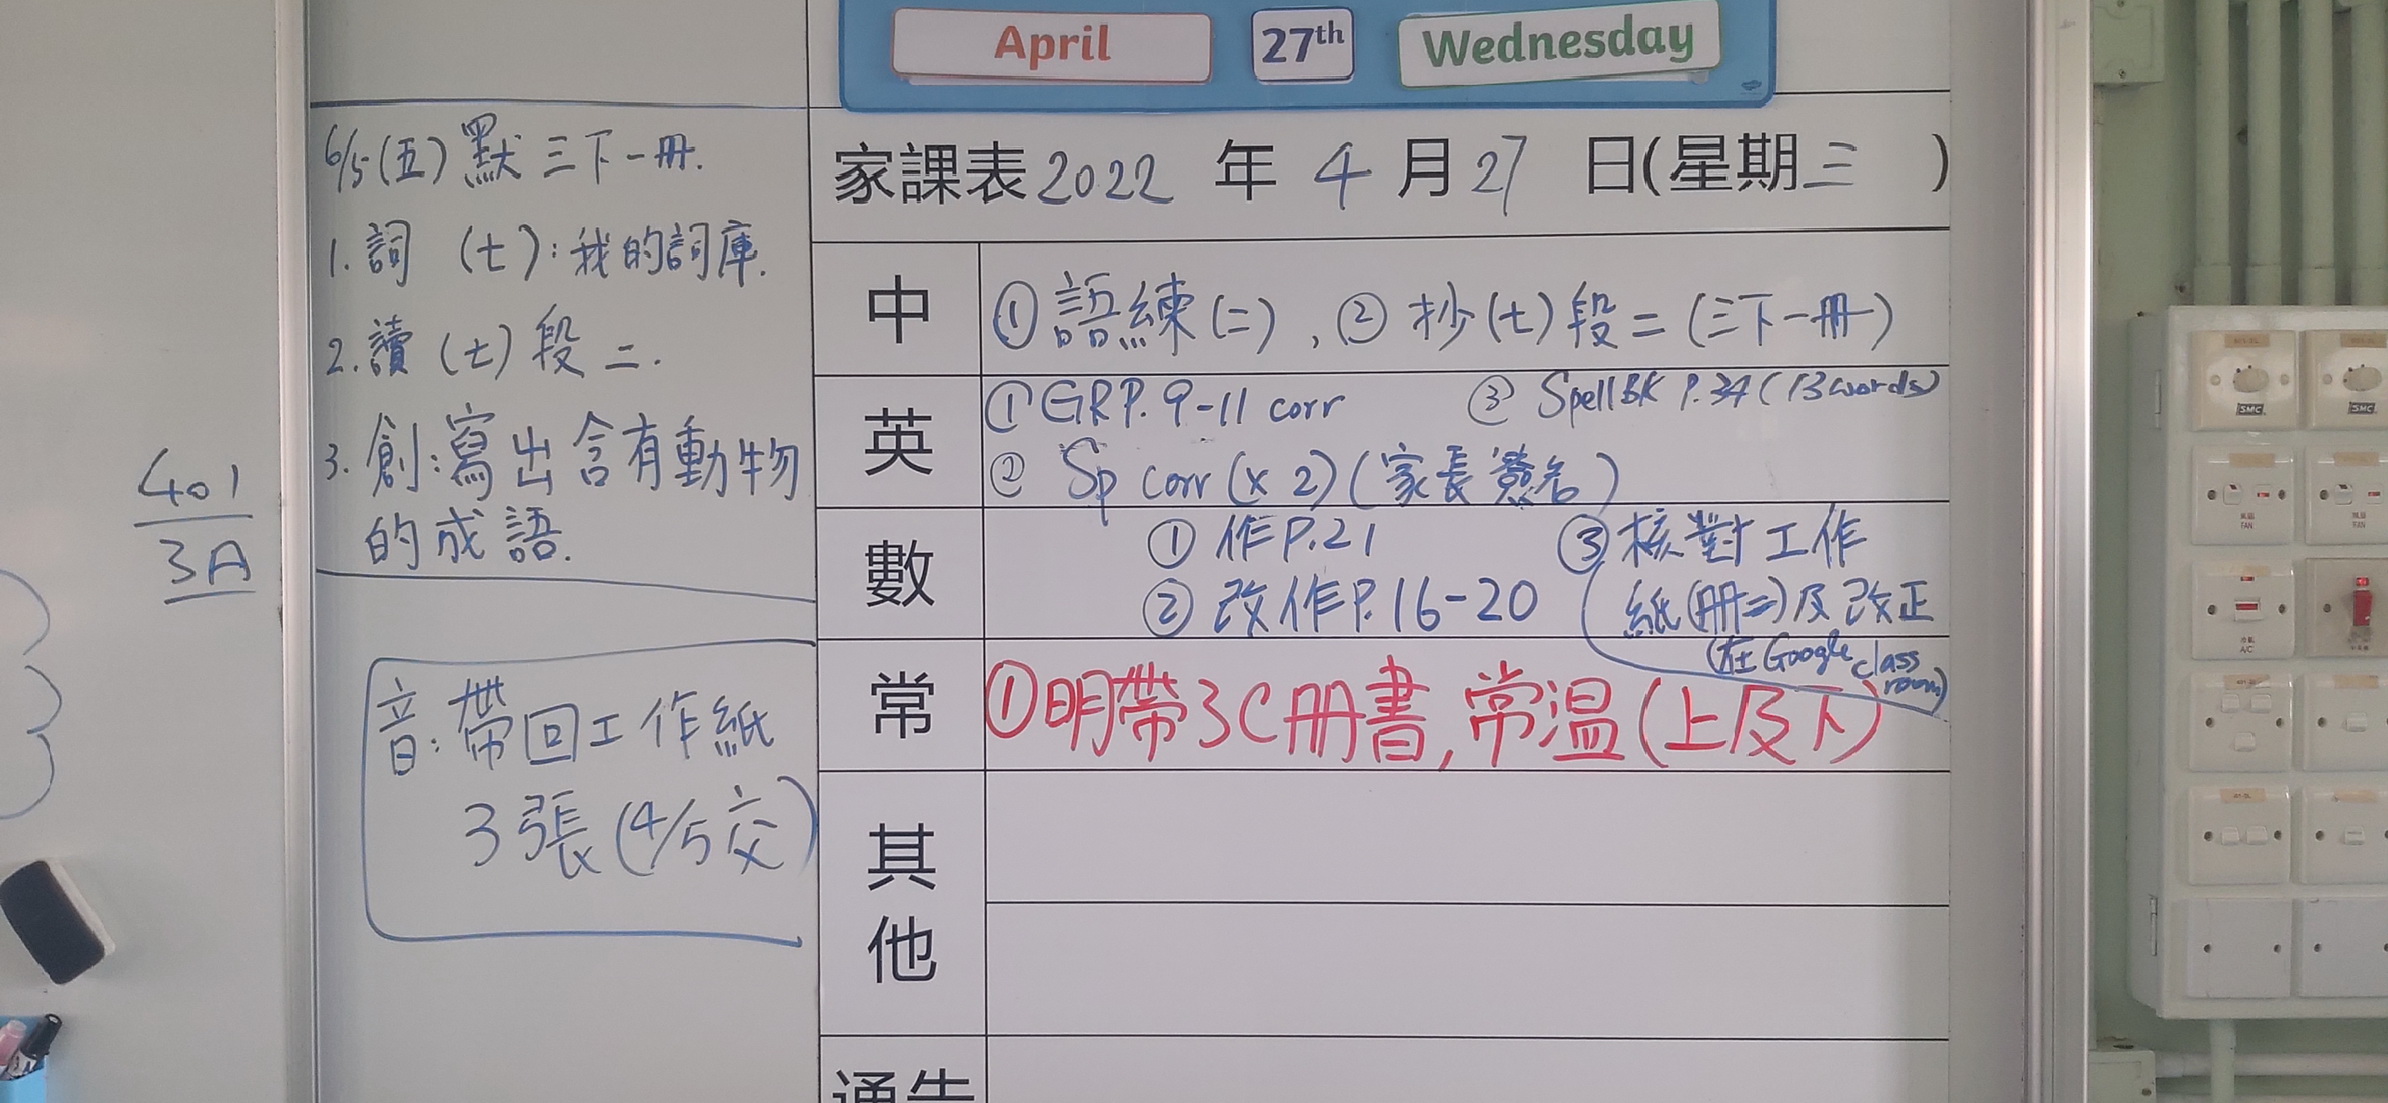 April 27th Wednesday
6/5(五)默三下一冊.
1.詞 (七):我的詞庫.
2.讀 (七)段二.
3.創:寫出含有動物
的成語.
401
3A
音:帶回工作紙
3張(4/5交)
家課表2022年4月27日(星期三)
中
①語練(二),②抄(七)段二(三下一冊)
英
①GRP.9-11 corr ③SpellBK P.34(13words)
②Sp corr(x2)(家長簽名)
數
①作P.21
②改作P.16-20
③核對工作
紙(冊二)及改正
(在Google class
room)
常
①明帶3C冊書,常温(上及下)
其
他
通告
FAN
FAN
A/C
SMC
SMC